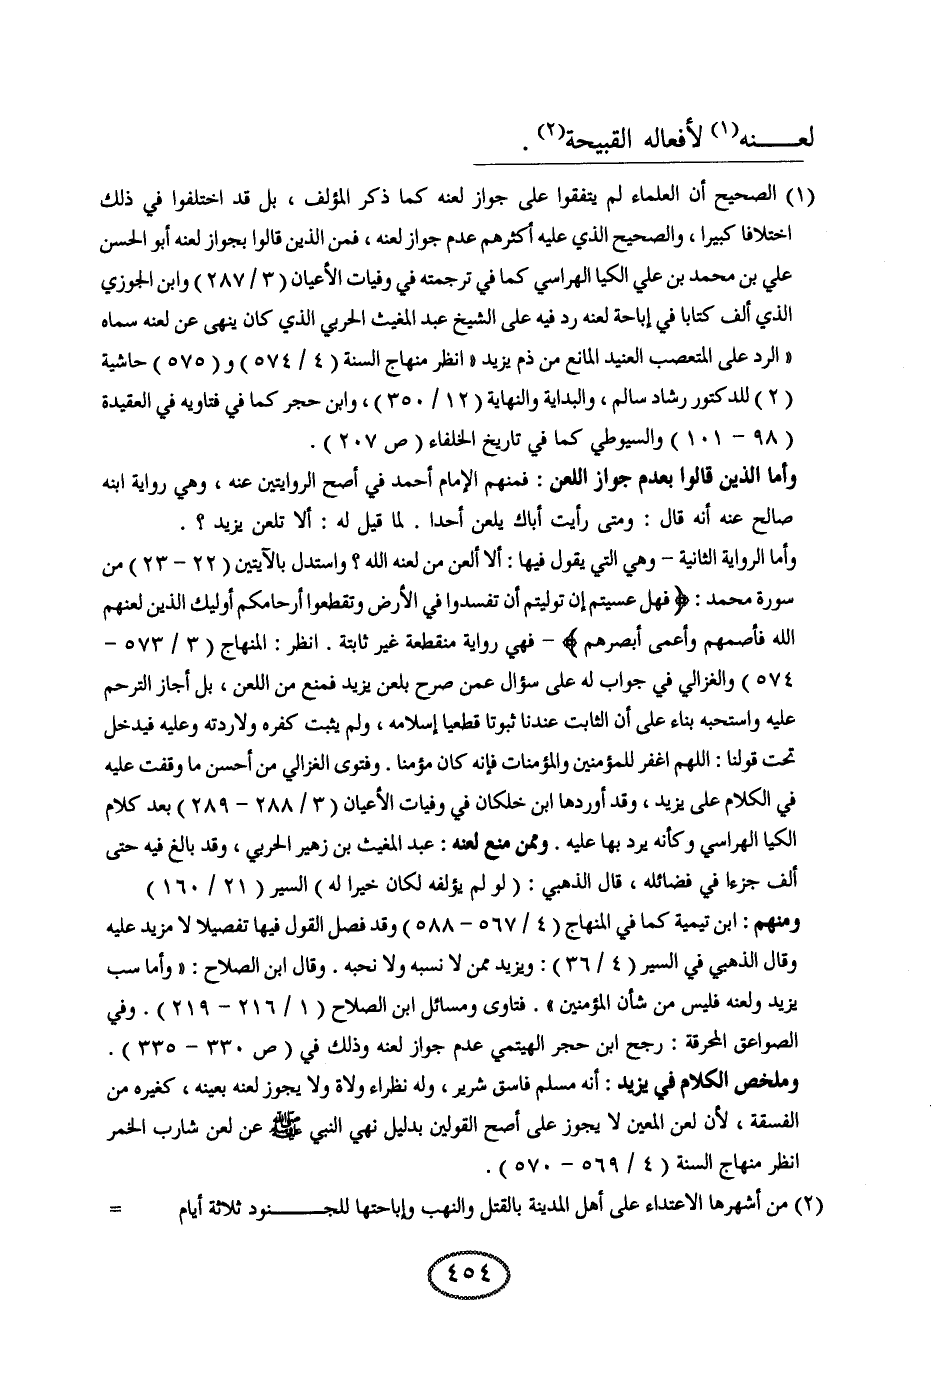 لعـــــنه(١) لأفعاله القبيحة(٢) .
(١) الصحيح أن العلماء لم يتفقوا على جواز لعنه كما ذكر المؤلف ، بل قد اختلفوا في ذلك
اختلافا كبيرا ، والصحيح الذي عليه أكثرهم عدم جواز لعنه ، فمن الذين قالوا بجواز لعنه أبو الحسن
علي بن محمد بن علي الكيا الهراسي كما في ترجمته في وفيات الأعيان ( ٣ / ٢٨٧ ) وابن الجوزي
الذي ألف كتابا في إباحة لعنه رد فيه على الشيخ عبد المغيث الحربي الذي كان ينهى عن لعنه سماه
« الرد على المتعصب العنيد المانع من ذم يزيد » انظر منهاج السنة ( ٤ / ٥٧٤ ) و ( ٥٧٥ ) حاشية
( ٢ ) للدكتور رشاد سالم ، والبداية والنهاية ( ١٢ / ٣٥٠ ) ، وابن حجر كما في فتاويه في العقيدة
( ٩٨ – ١٠١ ) والسيوطي كما في تاريخ الخلفاء ( ص ٢٠٧ ) .
وأما الذين قالوا بعدم جواز اللعن : فمنهم الإمام أحمد في أصح الروايتين عنه ، وهي رواية ابنه
صالح عنه أنه قال : ومتى رأيت أباك يلعن أحدا . لما قيل له : ألا تلعن يزيد ؟ .
وأما الرواية الثانية – وهي التي يقول فيها : ألا ألعن من لعنه الله ؟ واستدل بالآيتين ( ٢٢ – ٢٣ ) من
سورة محمد : ﴿ فهل عسيتم إن توليتم أن تفسدوا في الأرض وتقطعوا أرحامكم أوليك الذين لعنهم
الله فأصمهم وأعمى أبصرهم ﴾ – فهي رواية منقطعة غير ثابتة . انظر : المنهاج ( ٣ / ٥٧٣ –
٥٧٤ ) والغزالي في جواب له على سؤال عمن صرح بلعن يزيد فمنع من اللعن ، بل أجاز الترحم
عليه واستحبه بناء على أن الثابت عندنا ثبوتا قطعيا إسلامه ، ولم يثبت كفره ولاردته وعليه فيدخل
تحت قولنا : اللهم اغفر للمؤمنين والمؤمنات فإنه كان مؤمنا . وفتوى الغزالي من أحسن ما وقفت عليه
في الكلام على يزيد ، وقد أوردها ابن خلكان في وفيات الأعيان ( ٣ / ٢٨٨ – ٢٨٩ ) بعد كلام
الكيا الهراسي وكأنه يرد بها عليه . وممن منع لعنه : عبد المغيث بن زهير الحربي ، وقد بالغ فيه حتى
ألف جزءا في فضائله ، قال الذهبي : ( لو لم يؤلفه لكان خيرا له ) السير ( ٢١ / ١٦٠ )
ومنهم : ابن تيمية كما في المنهاج ( ٤ / ٥٦٧ – ٥٨٨ ) وقد فصل القول فيها تفصيلا لا مزيد عليه
وقال الذهبي في السير ( ٤ / ٣٦ ) : ويزيد ممن لا نسبه ولا نحبه . وقال ابن الصلاح : « وأما سب
يزيد ولعنه فليس من شأن المؤمنين » . فتاوى ومسائل ابن الصلاح ( ١ / ٢١٦ – ٢١٩ ) . وفي
الصواعق المحرقة : رجح ابن حجر الهيتمي عدم جواز لعنه وذلك في ( ص ٣٣٠ – ٣٣٥ ) .
وملخص الكلام في يزيد : أنه مسلم فاسق شرير ، وله نظراء ولاة ولا يجوز لعنه بعينه ، كغيره من
الفسقة ، لأن لعن المعين لا يجوز على أصح القولين بدليل نهي النبي ﷺ عن لعن شارب الخمر
انظر منهاج السنة ( ٤ / ٥٦٩ – ٥٧٠ ) .
(٢) من أشهرها الاعتداء على أهل المدينة بالقتل والنهب وإباحتها للجـــــنود ثلاثة أيام =
٤٥٤